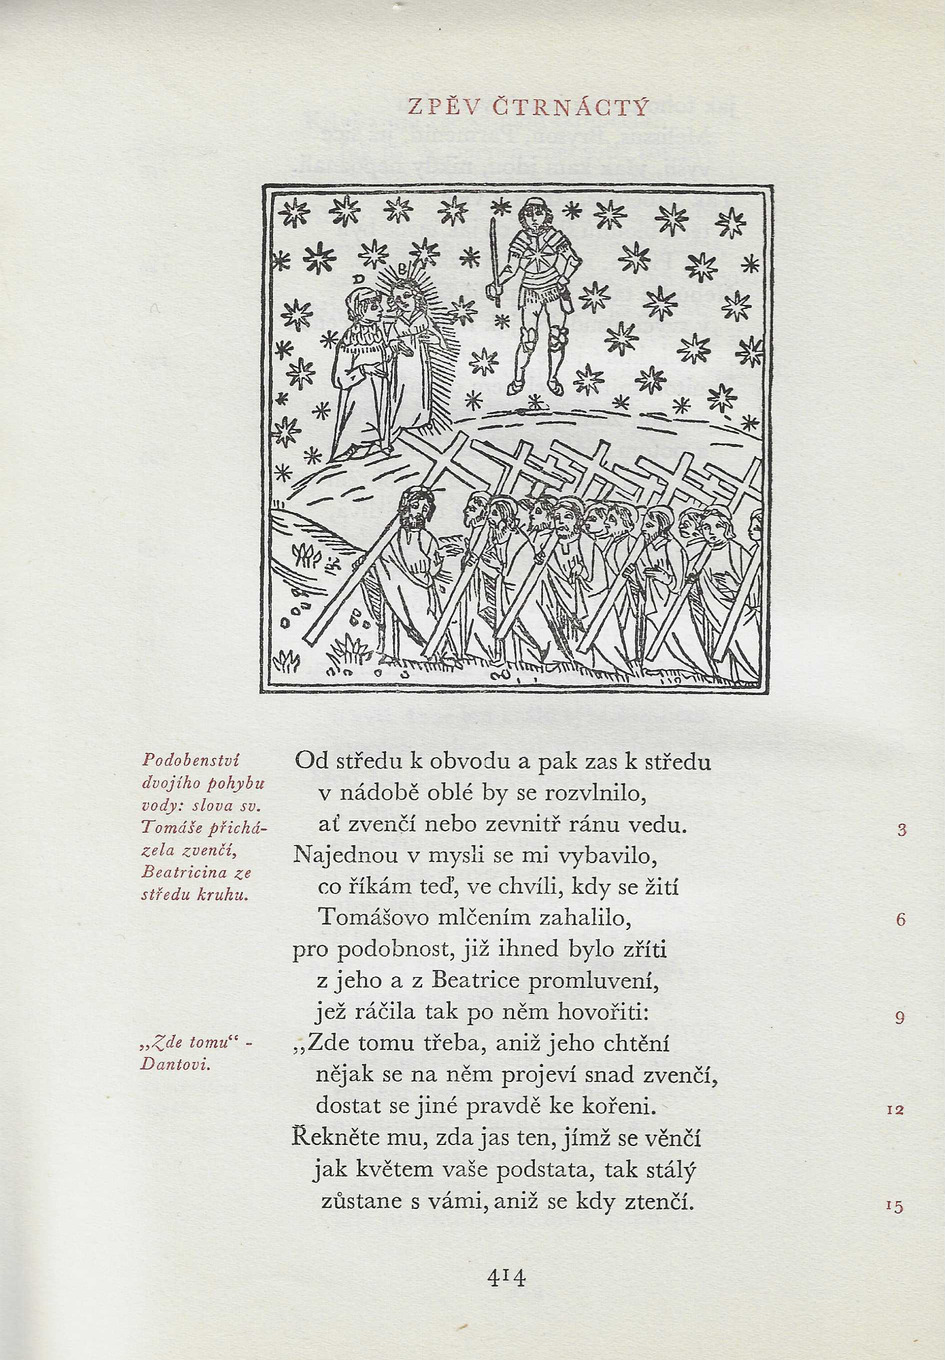 ZPĚV ČTRNÁCTÝ
D
B
Podobenství
dvojího pohybu
vody: slova sv.
Tomáše přichá-
zela zvenčí,
Beatricina ze
středu kruhu.
Od středu k obvodu a pak zas k středu
v nádobě oblé by se rozvlnilo,
ať zvenčí nebo zevnitř ránu vedu.
3
Najednou v mysli se mi vybavilo,
co říkám teď, ve chvíli, kdy se žití
Tomášovo mlčením zahalilo,
6
pro podobnost, již ihned bylo zříti
z jeho a z Beatrice promluvení,
jež ráčila tak po něm hovořiti:
9
„Zde tomu“ -
Dantovi.
„Zde tomu třeba, aniž jeho chtění
nějak se na něm projeví snad zvenčí,
dostat se jiné pravdě ke kořeni.
12
Řekněte mu, zda jas ten, jímž se věnčí
jak květem vaše podstata, tak stálý
zůstane s vámi, aniž se kdy ztenčí.
15
414